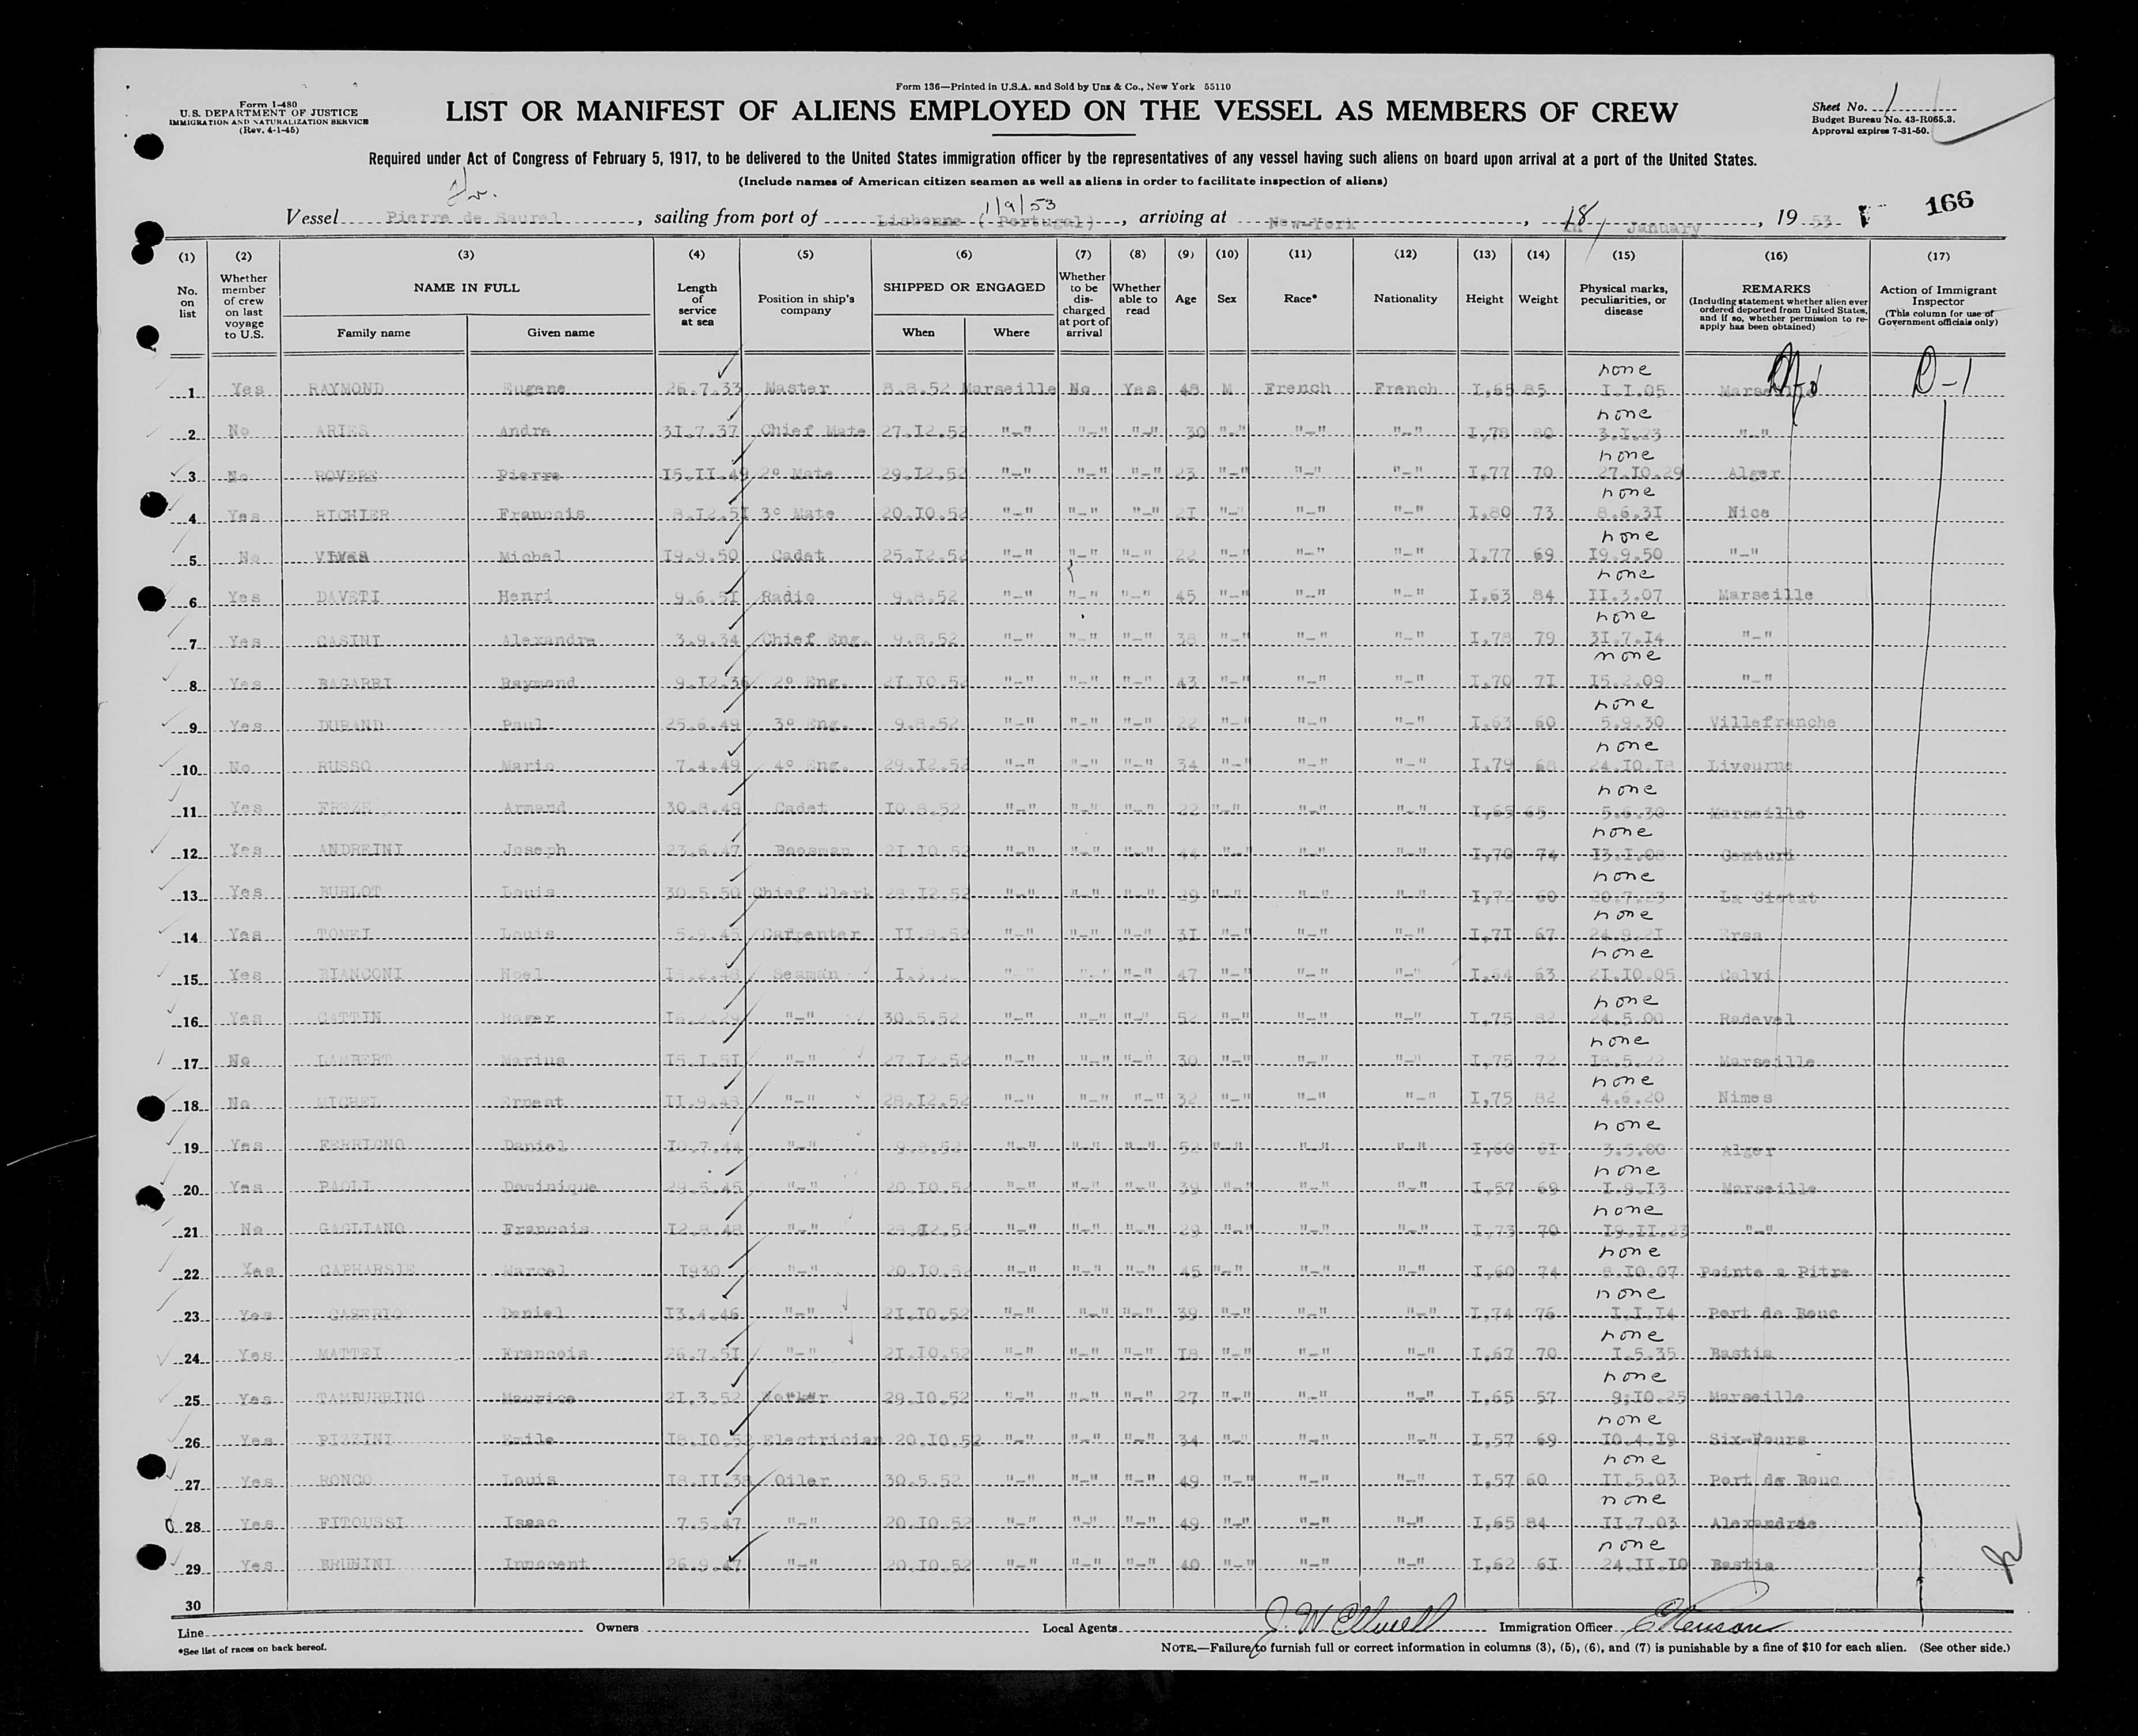 Form 136—Printed in U.S.A. and Sold by Unz & Co., New York 55110
Form I-480
U.S. DEPARTMENT OF JUSTICE
IMMIGRATION AND NATURALIZATION SERVICE
(Rev. 4-1-45)
LIST OR MANIFEST OF ALIENS EMPLOYED ON THE VESSEL AS MEMBERS OF CREW
Sheet No. 1
Budget Bureau No. 43-R065.3.
Approval expires 7-31-50.
Required under Act of Congress of February 5, 1917, to be delivered to the United States immigration officer by the representatives of any vessel having such aliens on board upon arrival at a port of the United States.
(Include names of American citizen seamen as well as aliens in order to facilitate inspection of aliens)
Fr.
1/9/53
166
Vessel Pierre de Saurel, sailing from port of Lisbonne (Portugal), arriving at New-York, 18, January, 19 53
(1) (2) (3) (4) (5) (6) (7) (8) (9) (10) (11) (12) (13) (14) (15) (16) (17)
No. on list
Whether member of crew on last voyage to U.S.
NAME IN FULL
Family name Given name
Length of service at sea
Position in ship's company
SHIPPED OR ENGAGED
When Where
Whether to be discharged at port of arrival
Whether able to read
Age Sex Race* Nationality Height Weight
Physical marks, peculiarities, or disease
REMARKS
(Including statement whether alien ever ordered deported from United States, and if so, whether permission to re-apply has been obtained)
Action of Immigrant Inspector
(This column for use of Government officials only)
1 Yes RAYMOND Eugene 26.7.33 Master 8.8.52 Marseille No Yes 48 M French French I,65 85 none I.I.05 Marseille D-1
2 No ARIES Andre 3I.7.37 Chief Mate 27.I2.52 "-" "-" "-" 30 "-" "-" "-" I,78 80 none 3.I.23 "-"
3 No ROVERE Pierre I5.II.49 2º Mate 29.I2.52 "-" "-" "-" 23 "-" "-" "-" I,77 70 none 27.I0.29 Alger
4 Yes RICHIER Francois 8.I2.5I 3º Mate 20.I0.52 "-" "-" "-" 2I "-" "-" "-" I,80 73 none 8.6.3I Nice
5 No VIVES Michel I9.9.50 Cadet 25.I2.52 "-" "-" "-" 22 "-" "-" "-" I,77 69 none I9.9.50 "-"
6 Yes DAVETI Henri 9.6.5I Radio 9.8.52 "-" "-" "-" 45 "-" "-" "-" I,63 84 none II.3.07 Marseille
7 Yes CASINI Alexandre 3.9.34 Chief Eng. 9.8.52 "-" "-" "-" 38 "-" "-" "-" I,78 79 none 3I.7.I4 "-"
8 Yes BAGARRI Raymond 9.I2.36 2º Eng. 2I.I0.52 "-" "-" "-" 43 "-" "-" "-" I,70 7I none I5.2.09 "-"
9 Yes DURAND Paul 25.6.49 3º Eng. 9.8.52 "-" "-" "-" 22 "-" "-" "-" I,63 60 none 5.9.30 Villefranche
10 No RUSSO Mario 7.4.49 4º Eng. 29.I2.52 "-" "-" "-" 34 "-" "-" "-" I,79 68 none 24.I0.I8 Livourne
11 Yes FREZE Armand 30.8.49 Cadet I0.8.52 "-" "-" "-" 22 "-" "-" "-" I,65 65 none 5.6.30 Marseille
12 Yes ANDREINI Joseph 23.6.47 Boosman 2I.I0.52 "-" "-" "-" 44 "-" "-" "-" I,70 74 none I3.I.08 Centuri
13 Yes BURLOT Louis 30.5.50 Chief Clerk 28.I2.52 "-" "-" "-" 29 "-" "-" "-" I,72 60 none 20.7.23 La Ciotat
14 Yes TOMEI Louis 5.9.45 Carpenter II.8.52 "-" "-" "-" 3I "-" "-" "-" I,7I 67 none 24.9.2I Ersa
15 Yes BIANCONI Noel I8.2.48 Seaman "-" "-" "-" 47 "-" "-" "-" 63 none 2I.I0.05 Calvi
16 Yes CATTIN Roger "-" 30.5.52 "-" "-" "-" 52 "-" "-" "-" I,75 82 none 24.5.00 Radevel
17 No LAMBERT Marius I5.I.5I "-" 27.I2.52 "-" "-" "-" 30 "-" "-" "-" I,75 72 none I8.5.22 Marseille
18 No MICHEL Ernest II.9.48 "-" 28.I2.52 "-" "-" "-" 32 "-" "-" "-" I,75 82 none 4.6.20 Nimes
19 Yes FERRIGNO Daniel I0.7.44 "-" 9.8.52 "-" "-" "-" 52 "-" "-" "-" I,60 6I none 3.5.00 Alger
20 Yes PAOLI Dominique 29.5.45 "-" 20.I0.52 "-" "-" "-" 39 "-" "-" "-" I,57 69 none I.9.I3 Marseille
21 No GAGLIANO Francois I2.8.48 "-" 28.I2.52 "-" "-" "-" 29 "-" "-" "-" I,73 70 none I9.II.23 "-"
22 Yes CAPHARSIE Marcel I930 "-" 20.I0.52 "-" "-" "-" 45 "-" "-" "-" I,60 74 none 8.I0.07 Pointe a Pitre
23 Yes CASERIO Daniel I3.4.46 "-" 2I.I0.52 "-" "-" "-" 39 "-" "-" "-" I,74 76 none I.I.I4 Port de Bouc
24 Yes MATTEI Francois 26.7.5I "-" 2I.I0.52 "-" "-" "-" I8 "-" "-" "-" I,67 70 none I.5.35 Bastia
25 Yes TAMBURRINO Maurice 2I,3.52 29.I0.52 "-" "-" "-" 27 "-" "-" "-" I,65 57 none 9;I0.25 Marseille
26 Yes PIZZINI Emile I8.I0.52 Electrician 20.I0.52 "-" "-" "-" 34 "-" "-" "-" I,57 69 none I0.4.I9 Six-Fours
27 Yes RONCO Louis I8.II.38 Oiler 30.5.52 "-" "-" "-" 49 "-" "-" "-" I,57 60 none II.5.03 Port de Bouc
28 Yes FITOUSSI Isaac 7.5.47 "-" 20.I0.52 "-" "-" "-" 49 "-" "-" "-" I,65 84 none II.7.03 Alexandrie
29 Yes BRUNINI Innocent 26.9.47 "-" 20.I0.52 "-" "-" "-" 40 "-" "-" "-" I,62 6I none 24.II.I0 Bastia
30
Line Owners Local Agents J. W. Elwell Immigration Officer
*See list of races on back hereof.
NOTE.—Failure to furnish full or correct information in columns (3), (5), (6), and (7) is punishable by a fine of $10 for each alien. (See other side.)